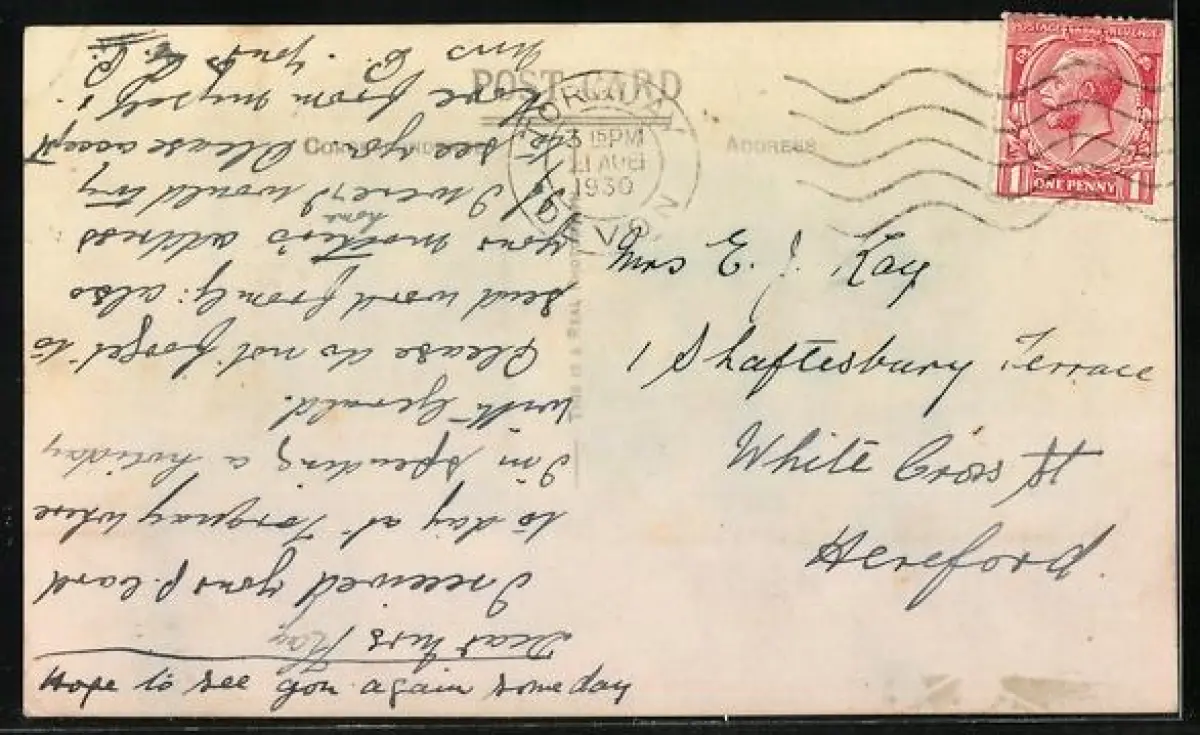 POST CARD
CORRESPONDENCE
ADDRESS
TORQUAY
3 15 PM
21 AUG
1930
DEVON
POSTAGE REVENUE
1 ONE PENNY 1
THIS IS A REAL
Mrs E. J. Kay
1 Shaftesbury Terrace
White Cross St
Hereford.
Dear Mrs Kay
I received your p. card
to day at Torquay where
I'm spending a holiday
with Gerald.
Please do not forget to
send word from ly: also
your mother's home address
I were I would try
to see you Please accept
love from myself &
Mrs C. yours
Hope to see you again some day